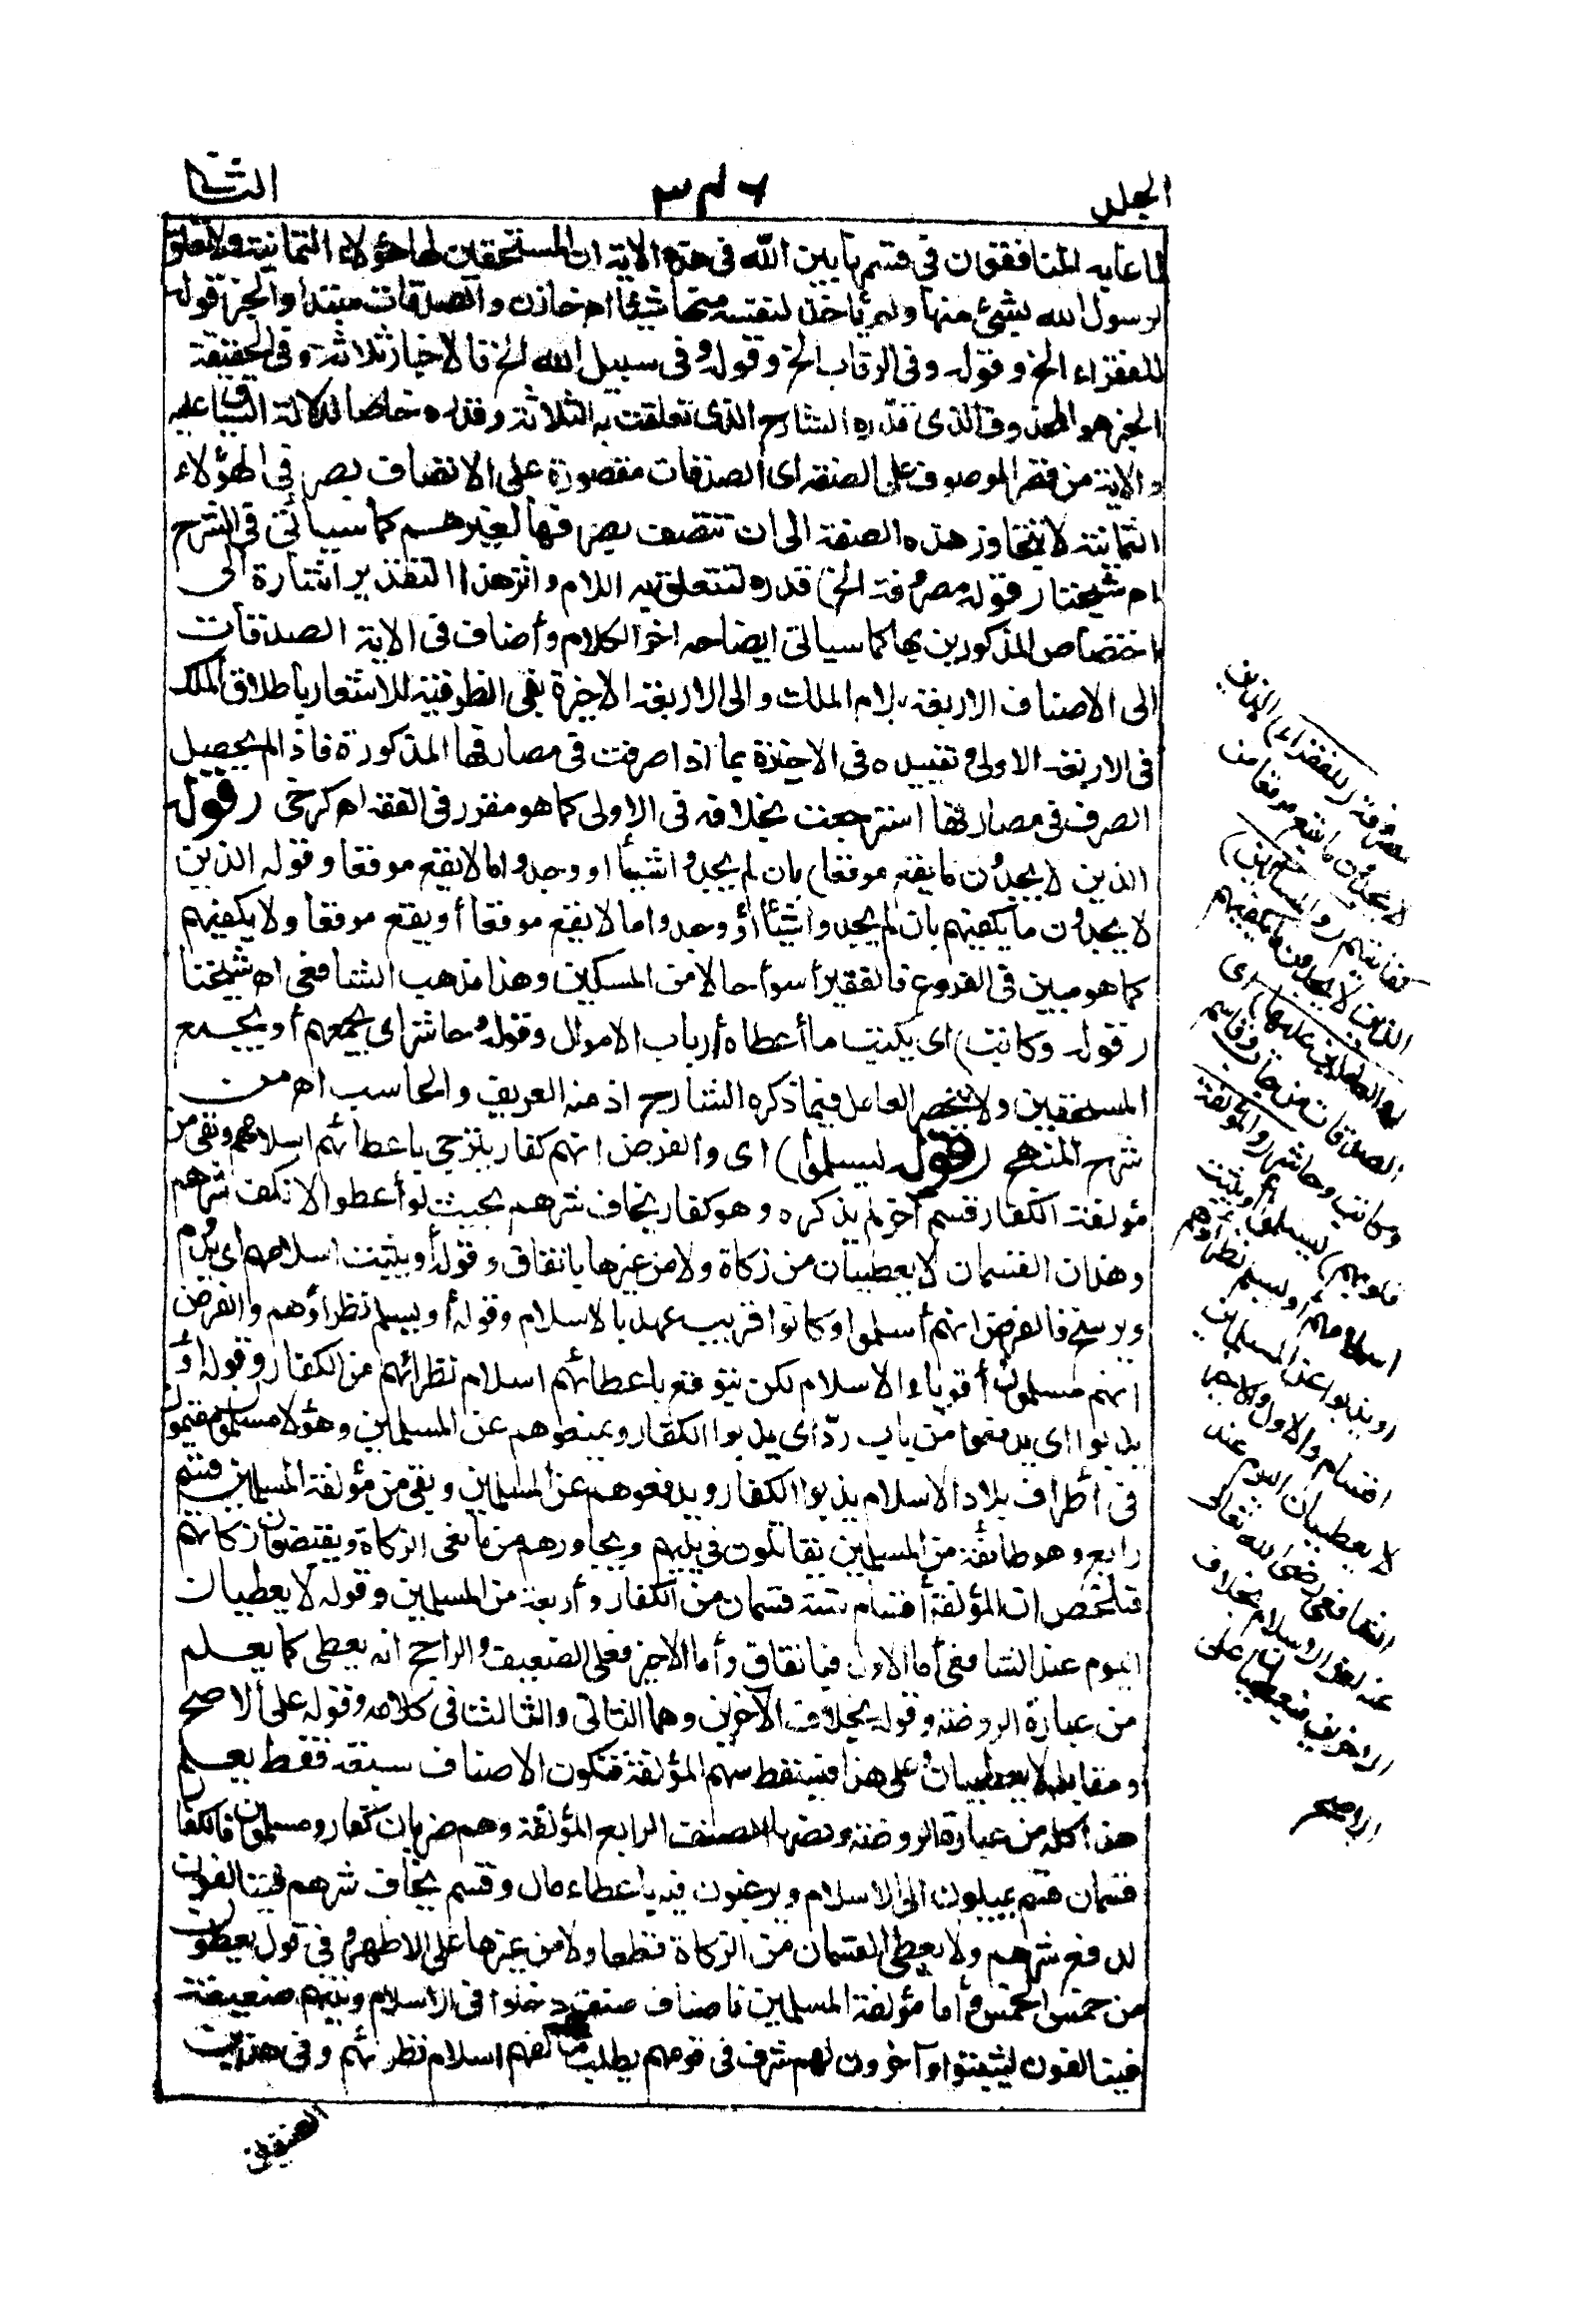 الجلد
٣٨٦
الثانی
لما عابه المنافقون في قسمها بين الله في هذه الاية ان المستحقين لها هؤلاء الثمانية ولا تعلق
لرسول الله بشئ منها ولم يأخذ لنفسه منها شيئا اه خازن والصدقات مبتدا والخبر قوله
للفقراء الخ وقوله وفى الرقاب الخ وقوله وفى سبيل الله الخ فالاخبار ثلاثة وفى الحقيقة
الخبر هو المحذوف الذى قدره الشارح الذى تعلقت به الثلاثة وقدره خاصا لدلالة السياق عليه
والاية من قصر الموصوف على الصفة اى الصدقات مقصورة على الاتصاف بصرفها لهؤلاء
الثمانية لا تتجاوز هذه الصفة الى ان تتصف بصرفها لغيرهم كما سيأتى فى الشرح
اه شيخنا رقوله مصروفة الخ) قدره لتتعلق به اللام واثر هذا التقدير اشارة الى
اختصاص المذكورين بها كما سيأتى ايضاحه اخر الكلام وأضاف فى الاية الصدقات
الى الاصناف الاربعة بلام الملك والى الاربعة الاخيرة بفى الظرفية للاشعار باطلاق الملك
فى الاربعة الاولى وتقييده فى الاخيرة بما اذا صرفت فى مصارفها المذكورة فاذا لم يحصل
الصرف فى مصارفها استرجعت بخلافه فى الاولى كما هو مقرر فى الفقه اه كرخى رقوله
الذين لا يجدون ما يقع موقعا) بان لم يجدوا شيئا او وجدوا ما لا يقع موقعا وقوله الذين
لا يجدون ما يكفيهم بان لم يجدوا شيئا أو وجدوا ما لا يقع موقعا أو يقع موقعا ولا يكفيهم
كما هو مبين فى الفروع فالفقير أسوأ حالا من المسكين وهذا مذهب الشافعى اه شيخنا
رقوله وكاتب) اى يكتب ما أعطاه أرباب الاموال وقوله وحاشر اى يجمعهم أو يجمع
المستحقين ولا ينحصر العامل فيما ذكره الشارح اذ منه العريف والحاسب اه من
شرح المنهج (قوله ليسلموا) اى والفرض انهم كفار يترجى باعطائهم اسلامهم وبقى من
مؤلفة الكفار قسم آخر لم يذكره وهو كفار يخاف شرهم بحيث لو أعطوا لانكف شرهم
وهذان القسمان لا يعطيان من زكاة ولا من غيرها باتفاق وقوله أو يثبت اسلامهم اى يدوم
ويرسخ فالفرض انهم أسلموا وكانوا قريب عهد بالاسلام وقوله أو يسلم نظراؤهم والفرض
انهم مسلمون أقوياء الاسلام لكن يتوقع باعطائهم اسلام نظرائهم من الكفار وقوله او
يذبوا اى يدفعوا من باب ردّ اى يذبوا الكفار ويمنعوهم عن المسلمين وهؤلاء مسلمون مقيمون
فى أطراف بلاد الاسلام يذبوا الكفار ويدفعوهم عن المسلمين وبقى من مؤلفة المسلمين قسم
رابع وهو طائفة من المسلمين يقاتلون من يليهم ويجاورهم من مانعى الزكاة ويقبضون زكاتهم
فتلخص ان المؤلفة أقسام ستة قسمان من الكفار وأربعة من المسلمين وقوله لا يعطيان
اليوم عند الشافعى أما الاول فباتفاق وأما الاخير فعلى الضعيف والراجح انه يعطى كما يعلم
من عبارة الروضة وقوله بخلاف الآخرين وهما الثانى والثالث فى كلامه وقوله على الاصح
ومقابله لا يعطيان وعلى هذا فيسقط سهم المؤلفة فتكون الاصناف سبعة فقط يعلم
هذا كله من عبارة الروضة ونصها الصنف الرابع المؤلفة وهم ضربان كفار ومسلمون فالكفار
قسمان قسم يميلون الى الاسلام ويرغبون فيه باعطاء مال وقسم يخاف شرهم فيتألفون
لدفع شرهم ولا يعطى القسمان من الزكاة قطعا ولا من غيرها على الاظهر وفى قول يعطون
من خمس الخمس وأما مؤلفة المسلمين فاصناف صنف دخلوا فى الاسلام ونيتهم ضعيفة
فيتألفون ليثبتوا وآخرون لهم شرف فى قومهم يطلب بتألفهم اسلام نظرائهم وفى هذين
الصنفين
مصروفة (للفقراء) الذين
لا يجدون ما يقع موقعا من
كفايتهم (والمساكين)
الذين لا يجدون ما يكفيهم
(والعاملين عليها) اى
الصدقات من جاب وقاسم
وكاتب وحاشر (والمؤلفة
قلوبهم) ليسلموا أو يثبت
اسلامهم أو يسلم نظراؤهم
او يذبوا عن المسلمين
اقسام والاول والاخير
لا يعطيان اليوم عند
الشافعى رضى الله تعالى
عنه لعز الاسلام بخلاف
الاخرين فيعطيان على
الاصح